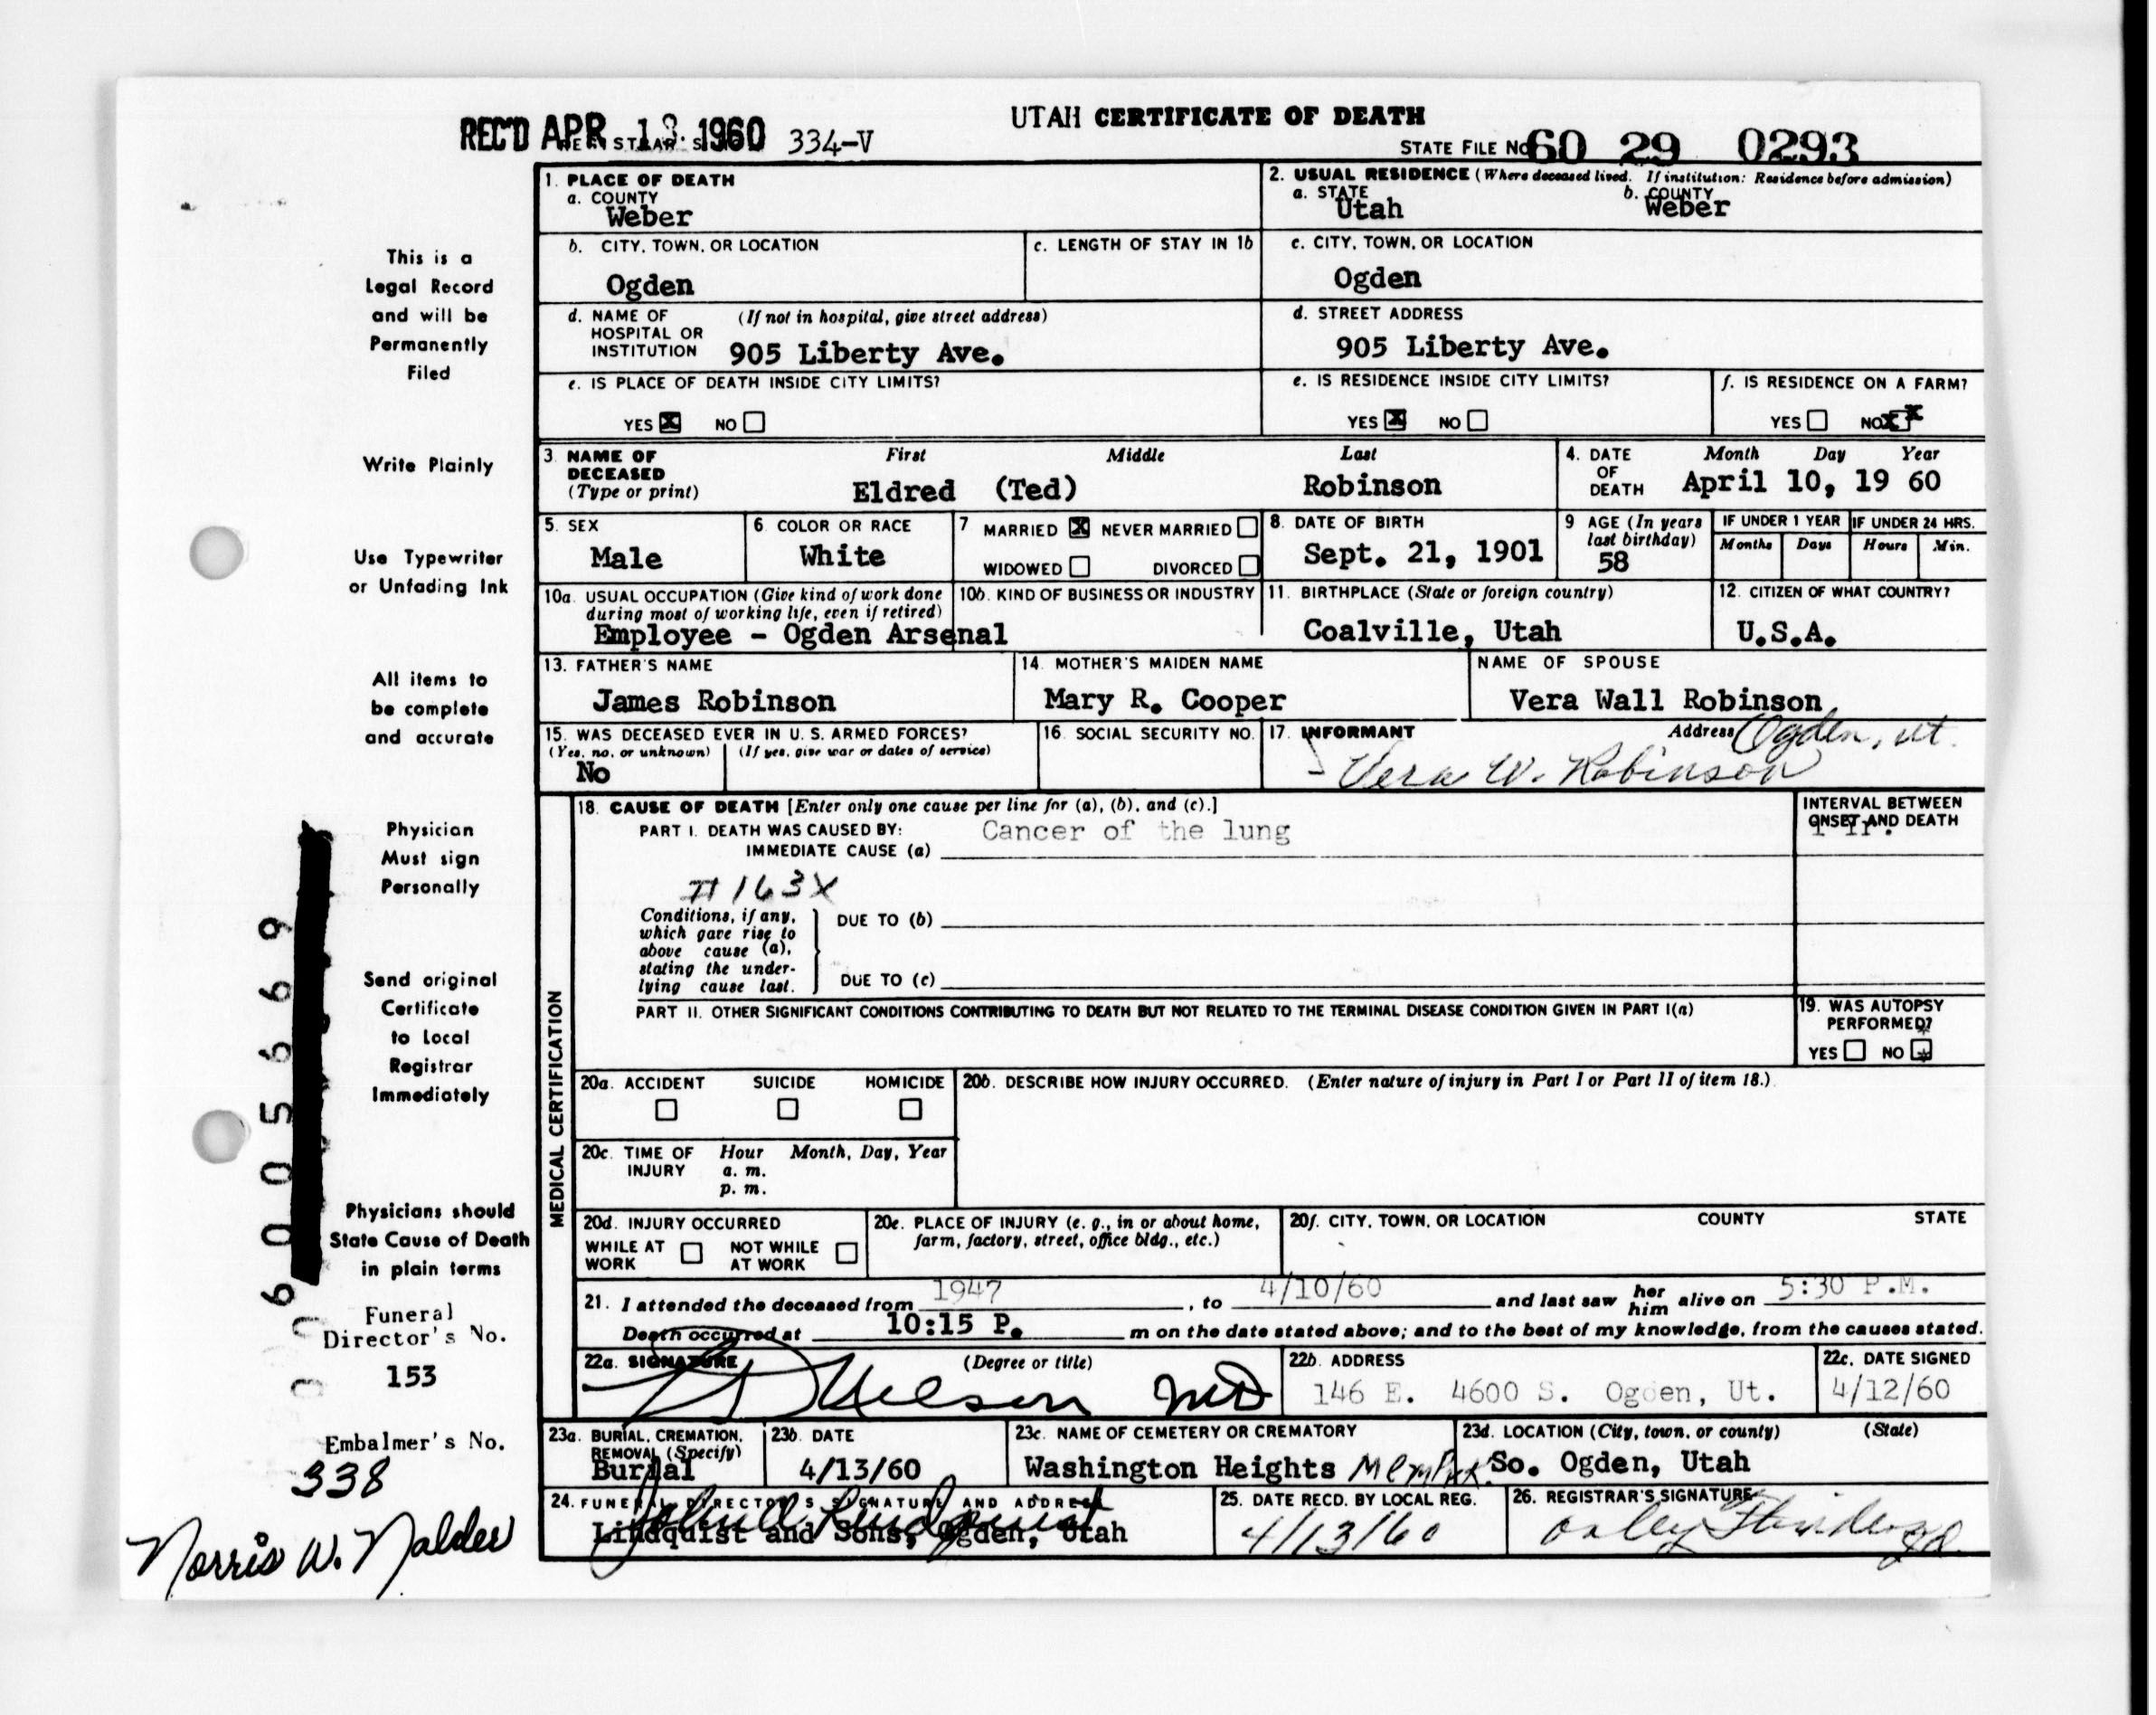 UTAH CERTIFICATE OF DEATH
REC'D APR 13 1960 334-V
STATE FILE No. 60 29 0293
1. PLACE OF DEATH
a. COUNTY
Weber
2. USUAL RESIDENCE (Where deceased lived. If institution: Residence before admission)
a. STATE b. COUNTY
Utah Weber
b. CITY, TOWN, OR LOCATION
Ogden
c. LENGTH OF STAY IN 1b
c. CITY, TOWN, OR LOCATION
Ogden
d. NAME OF (If not in hospital, give street address)
HOSPITAL OR
INSTITUTION 905 Liberty Ave.
d. STREET ADDRESS
905 Liberty Ave.
e. IS PLACE OF DEATH INSIDE CITY LIMITS?
YES X NO
e. IS RESIDENCE INSIDE CITY LIMITS?
YES X NO
f. IS RESIDENCE ON A FARM?
YES NO X
3. NAME OF First Middle Last
DECEASED
(Type or print) Eldred (Ted) Robinson
4. DATE Month Day Year
OF
DEATH April 10, 19 60
5. SEX
Male
6. COLOR OR RACE
White
7 MARRIED X NEVER MARRIED
WIDOWED DIVORCED
8. DATE OF BIRTH
Sept. 21, 1901
9 AGE (In years
last birthday)
58
IF UNDER 1 YEAR IF UNDER 24 HRS.
Months Days Hours Min.
10a. USUAL OCCUPATION (Give kind of work done
during most of working life, even if retired)
Employee - Ogden Arsenal
10b. KIND OF BUSINESS OR INDUSTRY
11. BIRTHPLACE (State or foreign country)
Coalville, Utah
12. CITIZEN OF WHAT COUNTRY?
U.S.A.
13. FATHER'S NAME
James Robinson
14. MOTHER'S MAIDEN NAME
Mary R. Cooper
NAME OF SPOUSE
Vera Wall Robinson
15. WAS DECEASED EVER IN U. S. ARMED FORCES?
(Yes, no, or unknown) (If yes, give war or dates of service)
No
16. SOCIAL SECURITY NO.
17. INFORMANT Address Ogden, Ut.
Vera W. Robinson
MEDICAL CERTIFICATION
18. CAUSE OF DEATH [Enter only one cause per line for (a), (b), and (c).]
PART I. DEATH WAS CAUSED BY: Cancer of the lung
IMMEDIATE CAUSE (a)
INTERVAL BETWEEN
ONSET AND DEATH
163X
Conditions, if any,
which gave rise to
above cause (a),
stating the under-
lying cause last.
DUE TO (b)
DUE TO (c)
PART II. OTHER SIGNIFICANT CONDITIONS CONTRIBUTING TO DEATH BUT NOT RELATED TO THE TERMINAL DISEASE CONDITION GIVEN IN PART I(a)
19. WAS AUTOPSY
PERFORMED?
YES NO
20a. ACCIDENT SUICIDE HOMICIDE
20b. DESCRIBE HOW INJURY OCCURRED. (Enter nature of injury in Part I or Part II of item 18.)
20c. TIME OF Hour Month, Day, Year
INJURY a. m.
p. m.
20d. INJURY OCCURRED
WHILE AT NOT WHILE
WORK AT WORK
20e. PLACE OF INJURY (e. g., in or about home,
farm, factory, street, office bldg., etc.)
20f. CITY, TOWN, OR LOCATION COUNTY STATE
21. I attended the deceased from 1947, to 4/10/60 and last saw her him alive on 5:30 P.M.
Death occurred at 10:15 P. m on the date stated above; and to the best of my knowledge, from the causes stated.
22a. SIGNATURE (Degree or title)
Nelson MD
22b. ADDRESS
146 E. 4600 S. Ogden, Ut.
22c. DATE SIGNED
4/12/60
23a. BURIAL, CREMATION,
REMOVAL (Specify)
Burial
23b. DATE
4/13/60
23c. NAME OF CEMETERY OR CREMATORY
Washington Heights Mem Park
23d. LOCATION (City, town, or county) (State)
So. Ogden, Utah
24. FUNERAL DIRECTOR'S SIGNATURE AND ADDRESS
Lindquist and Sons, Ogden, Utah
25. DATE RECD. BY LOCAL REG.
4/13/60
26. REGISTRAR'S SIGNATURE
This is a
Legal Record
and will be
Permanently
Filed
Write Plainly
Use Typewriter
or Unfading Ink
All items to
be complete
and accurate
Physician
Must sign
Personally
Send original
Certificate
to Local
Registrar
Immediately
Physicians should
State Cause of Death
in plain terms
Funeral
Director's No.
153
Embalmer's No.
338
Norris W. Nalder
006005669